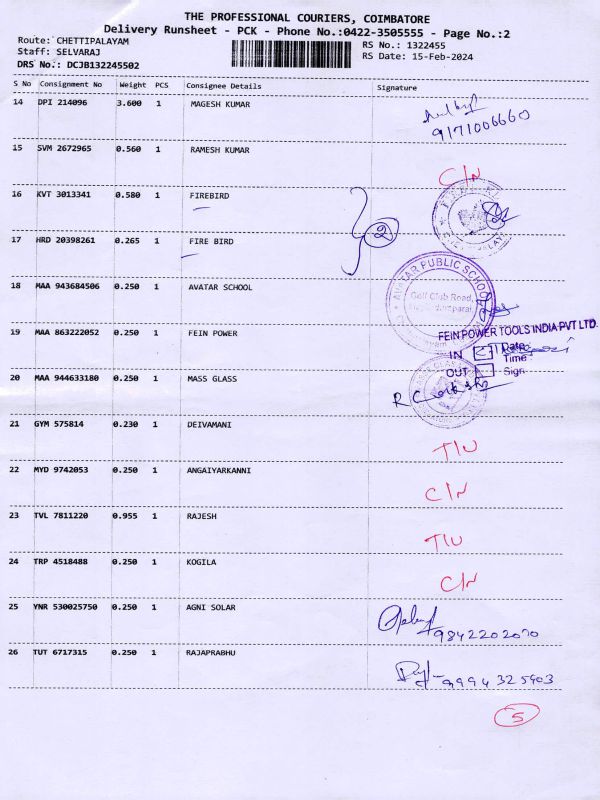 THE PROFESSIONAL COURIERS, COIMBATORE
Delivery Runsheet - PCK - Phone No.:0422-3505555 - Page No.:2
Route: CHETTIPALAYAM
Staff: SELVARAJ
DRS No.: DCJB132245502
RS No.: 1322455
RS Date: 15-Feb-2024
S No Consignment No Weight PCS Consignee Details Signature
14 DPI 214096 3.600 1 MAGESH KUMAR
9171006660
15 SVM 2672965 0.560 1 RAMESH KUMAR C/N
16 KVT 3013341 0.580 1 FIREBIRD
2
17 HRD 20398261 0.265 1 FIRE BIRD
18 MAA 943684506 0.250 1 AVATAR SCHOOL
AVATAR PUBLIC SCHOOL
Golf Club Road,
19 MAA 863222052 0.250 1 FEIN POWER
FEIN POWER TOOLS INDIA PVT LTD.
IN Date
Time
OUT Sign
20 MAA 944633180 0.250 1 MASS GLASS
21 GYM 575814 0.230 1 DEIVAMANI T/U
22 MYD 9742053 0.250 1 ANGAIYARKANNI C/N
23 TVL 7811220 0.955 1 RAJESH T/U
24 TRP 4518488 0.250 1 KOGILA C/N
25 YNR 530025750 0.250 1 AGNI SOLAR
9842202070
26 TUT 6717315 0.250 1 RAJAPRABHU
9994325903
5